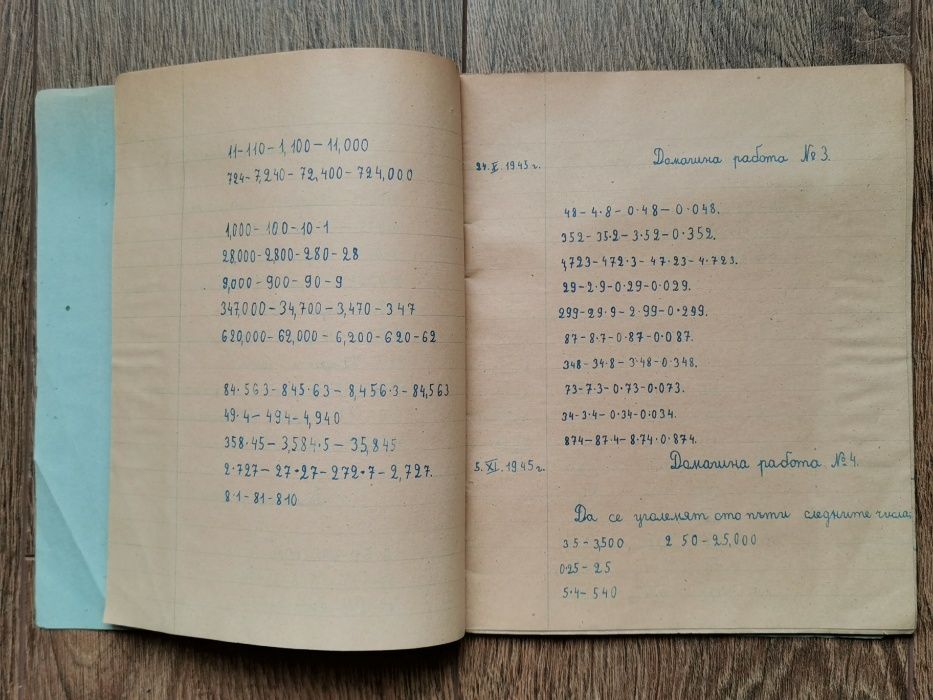 11-110-1,100-11,000
724-7,240-72,400-724,000
1,000-100-10-1
28,000-2,800-280-28
9,000-900-90-9
347,000-34,700-3,470-347
620,000-62,000-6,200-620-62
84·563-845·63-8,456·3-84,563
49·4-494-4,940
358·45-3,584·5-35,845
2·727-27·27-272·7-2,727.
8·1-81-810
24. X. 1945 г. Домашна работа № 3.
48-4·8-0·48-0·048.
352-35·2-3·52-0·352.
4,723-472·3-47·23-4·723.
29-2·9-0·29-0·029.
299-29·9-2·99-0·299.
87-8·7-0·87-0·087.
348-34·8-3·48-0·348.
73-7·3-0·73-0·073.
34-3·4-0·34-0·034.
874-87·4-8·74·0·874.
5. XI. 1945 г. Домашна работа № 4.
Да се уголемят сто пъти следните числа:
35-3,500 250-25,000
0·25-25
5·4-540